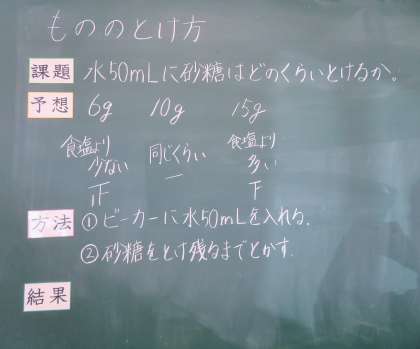 もののとけ方
課題 水50mLに砂糖はどのくらいとけるか。
予想 6g 10g 15g
食塩より 少ない
同じくらい
食塩より 多い
正 一 下
方法 ①ビーカーに水50mLを入れる。
②砂糖をとけ残るまでとかす。
結果